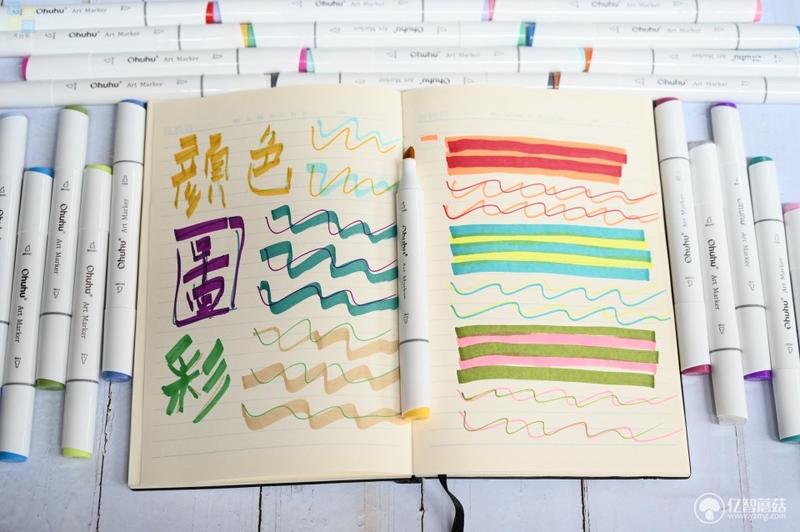 Ohuhu Art Marker
Ohuhu Art Marker
Ohuhu Art Marker
Ohuhu Art Marker
Ohuhu Art Marker
Ohuhu Art Marker
Ohuhu Art Marker
顏色
圖
彩
Ohuhu Art Marker
Ohuhu Art Marker
Ohuhu Art Marker
Ohuhu Art Marker
Ohuhu Art Marker
Ohuhu Art Marker
Ohuhu Art Marker
Ohuhu Art Marker
Ohuhu Art Marker
亿智蘑菇
www.yzmg.com